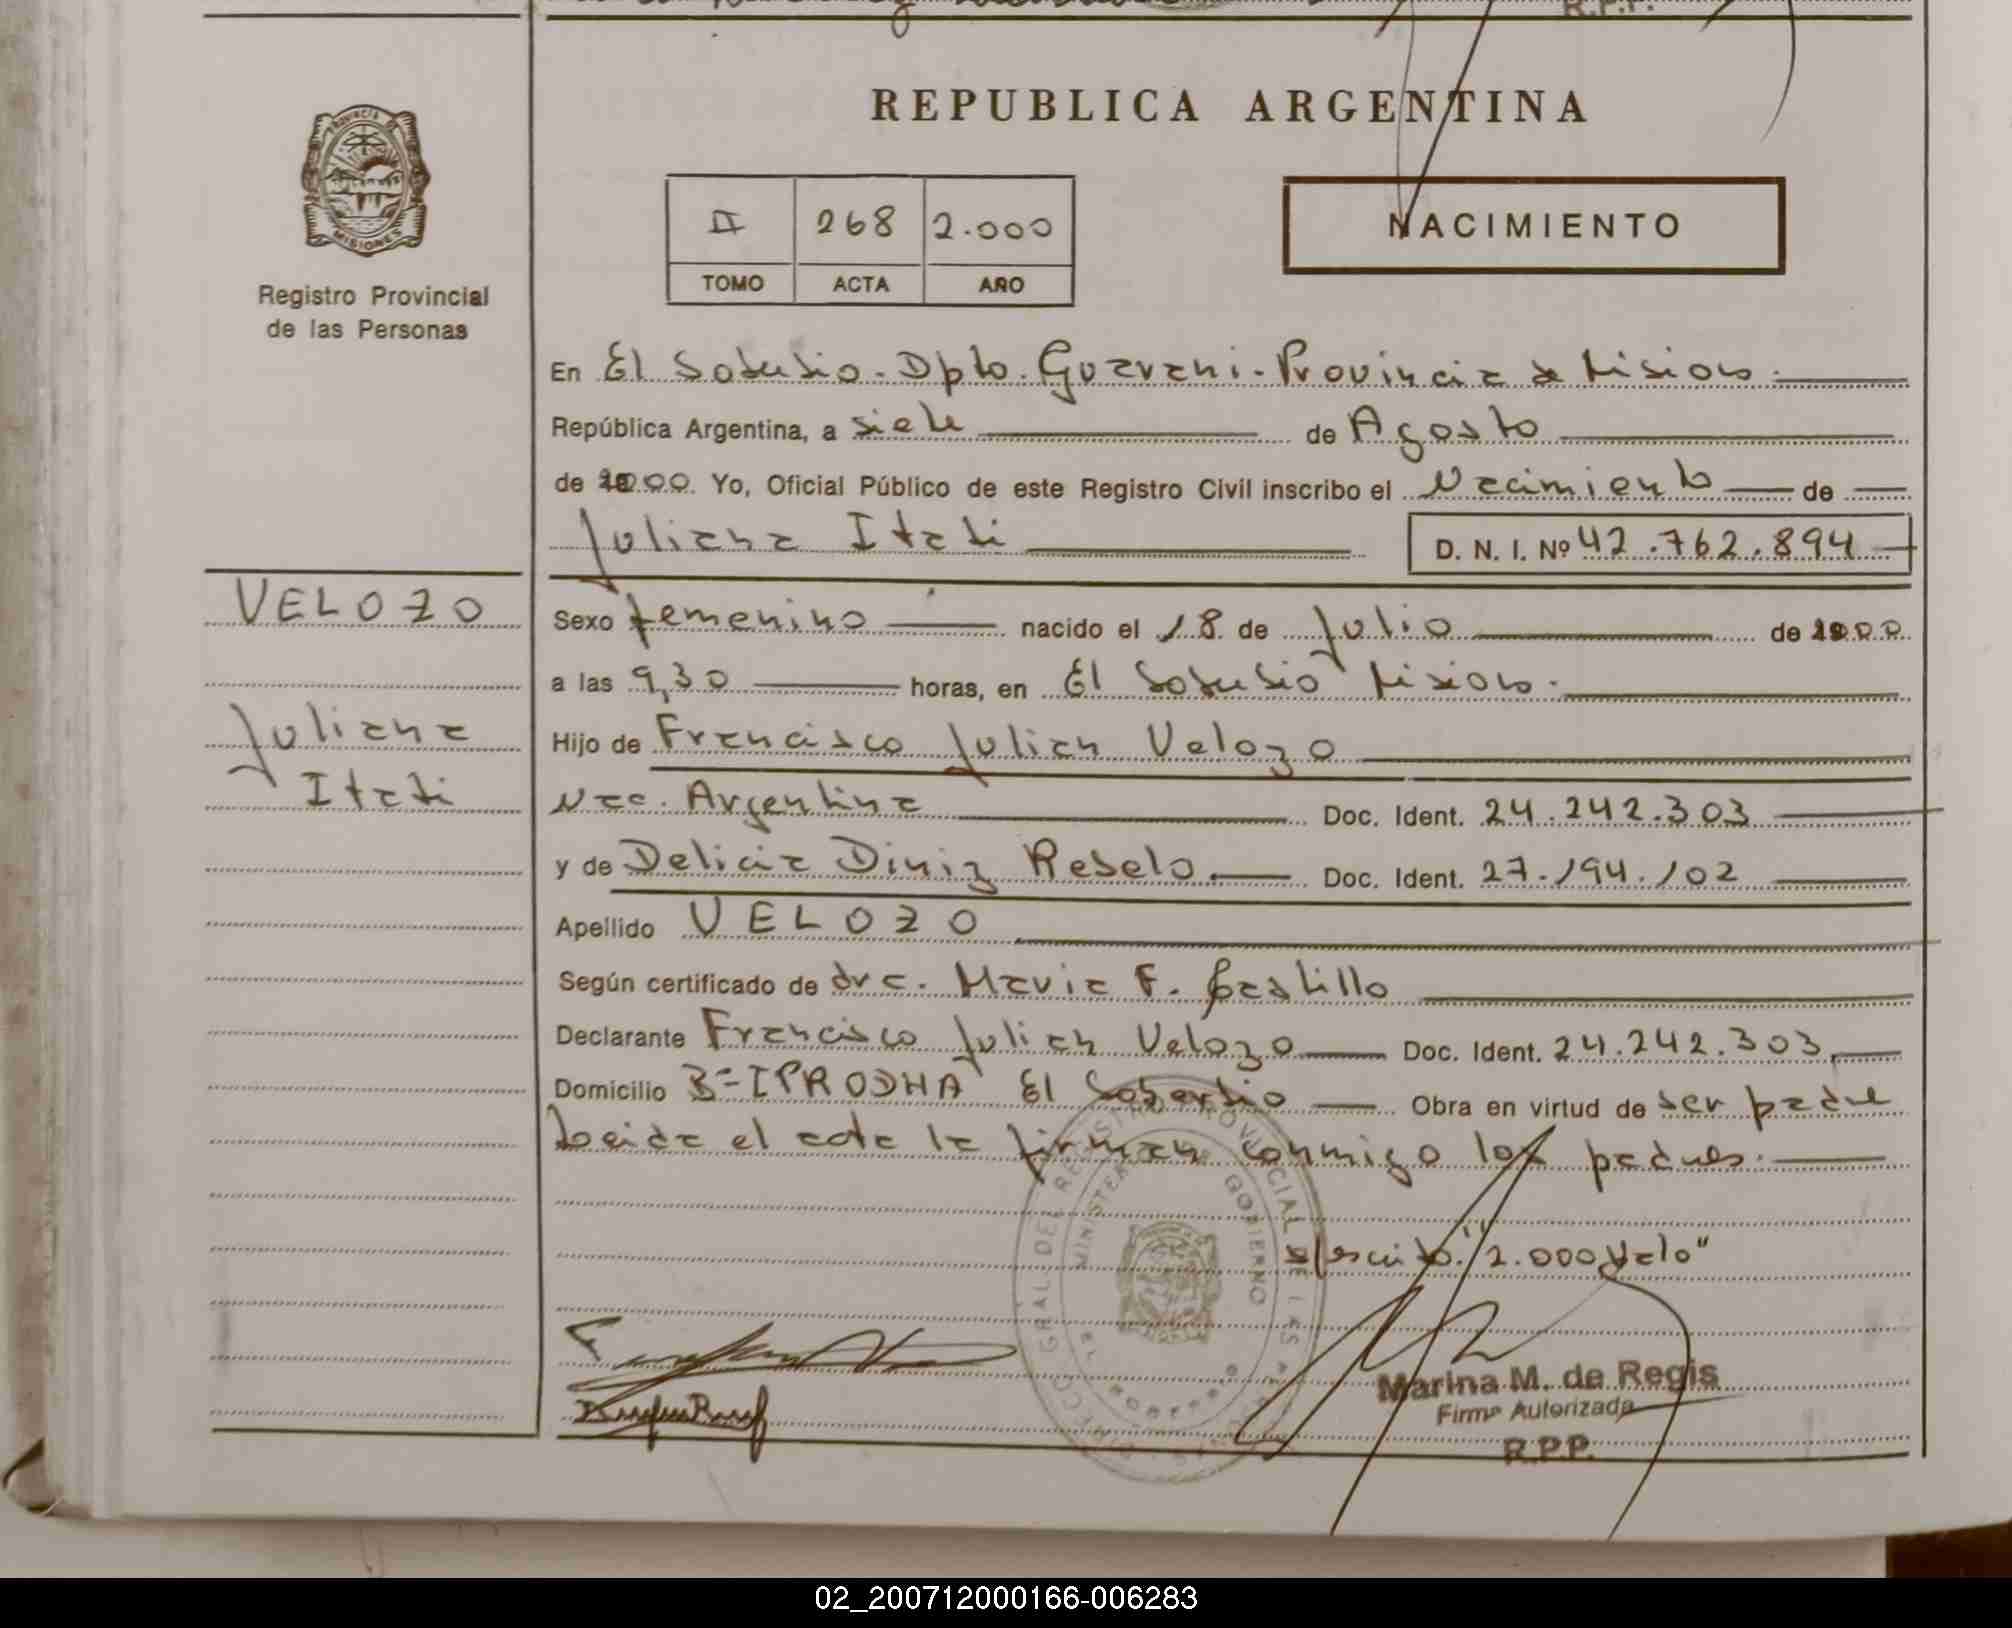 R.P.P.
REPUBLICA ARGENTINA
PROVINCIA DE
MISIONES
Registro Provincial
de las Personas
II 268 2.000
TOMO ACTA AÑO
NACIMIENTO
En El Soberbio. Dpto. Guarani. Provincia de Misiones.
República Argentina, a siete de Agosto
de 2000. Yo, Oficial Público de este Registro Civil inscribo el Nacimiento de
Juliana Itati D. N. I. Nº 42.762.894
VELOZO
Juliana
Itati
Sexo femenino nacido el 18 de Julio de 2000
a las 9,30 horas, en El Soberbio Misiones.
Hijo de Francisco Julian Velozo
Nac. Argentina Doc. Ident. 24.242.303
y de Delicia Diniz Rebelo Doc. Ident. 27.194.102
Apellido VELOZO
Según certificado de dra. Maria F. Castillo
Declarante Francisco Julian Velozo Doc. Ident. 24.242.303
Domicilio Bº IPRODHA El Soberbio Obra en virtud de ser padre
Leida el acta la firman conmigo los padres.
s/escrito: "2.000 Vale"
Marina M. de Regis
Firma Autorizada
R.P.P.
02_200712000166-006283